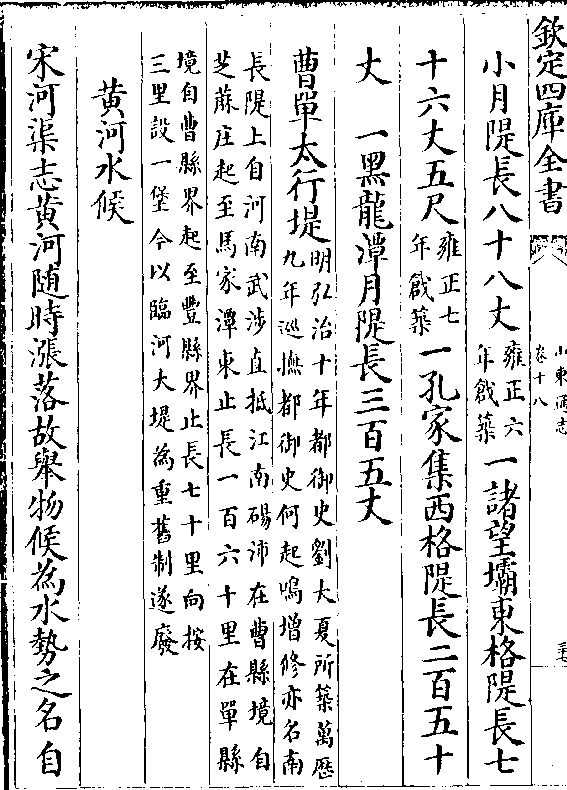 欽定四庫全書
山東通志
卷十八
小月隄長八十八丈雍正六年戧築一諸望壩東格隄長七
十六丈五尺雍正七年戧築一孔家集西格隄長二百五十
丈 一黑龍潭月隄長三百五丈
曹單太行堤明弘治十年都御史劉大夏所築萬歷九年巡撫都御史何起鳴增修亦名南
長隄上自河南武涉直抵江南碭沛在曹縣境自芝蔴庄起至馬家潭東止長一百六十里在單縣
境自曹縣界起至豐縣界止長七十里向按三里設一堡今以臨河大堤為重舊制遂廢
黄河水候
宋河渠志黄河随時漲落故舉物候為水勢之名自